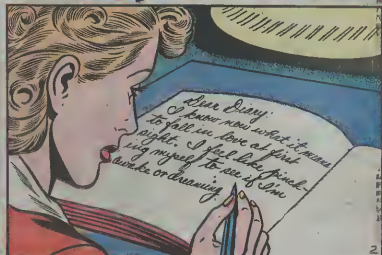 Dear Diary:
I know now what it means
to fall in love at first
sight. I feel like pinch-
ing myself to see if I'm
awake or dreaming
2